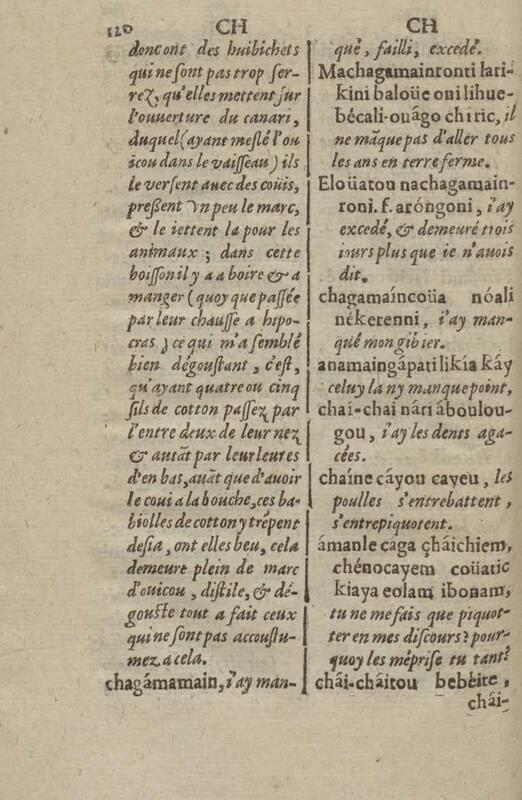 120
CH
CH
donc ont des huibichets
qui ne sont pas trop ser-
rez, qu'elles mettent sur
l'ouverture du canari,
duquel (ayant meslé l'ou
icou dans le vaisseau) ils
le versent auec des coüis,
pressent vn peu le marc,
& le iettent la pour les
animaux ; dans cette
boisson il y a a boire & a
manger (quoy que passée
par leur chausse a hipo-
cras, ) ce qui m'a semblé
bien dégoustant, c'est,
qu'ayant quatre ou cinq
fils de cotton passez par
l'entre deux de leur nez
& autāt par leur leures
d'en bas, auāt que d'auoir
le coui a la bouche, ces ba-
biolles de cotton y trēpent
desia, ont elles beu, cela
demeure plein de marc
d'ouicou, distile, & dé-
gouste tout a fait ceux
qui ne sont pas accoustu-
mez a cela.
chagámamain, i'ay man-
qué, failli, excedé.
Machagamainronti larì-
kini baloüe oni lihue-
bécali-ouágo chiric, il
ne māque pas d'aller tous
les ans en terre ferme.
Eloüatou nachagamain-
roni. f. aróngoni, i'ay
excedé, & demeuré trois
iours plus que ie n'auois
dit.
chagamaíncoüa nóali
nékerenni, i'ay man-
qué mon gibier.
anamaingápati likía káy
celuy la ny manque point,
chai-chai nári áboulou-
gou, i'ay les dents aga-
cées.
chaíne cáyou cayeu, les
poulles s'entrebattent,
s'entrepiquotent.
ámanle caga çháichiem,
chénocayem coüatic
kiaya eolam ibonam,
tu ne me fais que piquot-
ter en mes discours? pour-
quoy les méprise tu tant?
chái-cháitou bebéite,
chái-